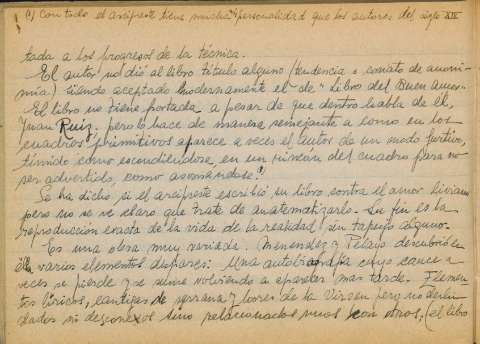 (1) Con todo el arcipreste tiene mucha personalidad que los autores del siglo XIII
tada a los progresos de la técnica.
El autor no dió al libro título alguno (tendencia o conato de anoni-
mia) siendo aceptado modernamente el de "Libro del Buen Amor.
El libro no tiene portada a pesar de que dentro habla de él,
Juan Ruiz. pero lo hace de manera semejante a como en los
cuadros primitivos aparece a veces el autor de un modo furtivo,
tímido como escondiéndose, en un rincón del cuadro para no
ser advertido, como asomándose.(1)
Se ha dicho, si el arcipreste escribió su libro contra el amor liviano
pero no se ve claro que trate de anatematizarlo. Su fin es la
reproducción exacta de la vida de la realidad, sin tapujo alguno.
Es una obra muy variada. Menendez y Pelayo descubrió en
ella varios elementos dispares: Una autobiografía cuyo cauce a
veces se pierde y se sume volviendo a aparecer mas tarde. Elemen-
tos líricos, cantigas de serrana y loores de la Virgen pero no deslin-
dados ni desconexos sino relacionados unos con otros. (el libro